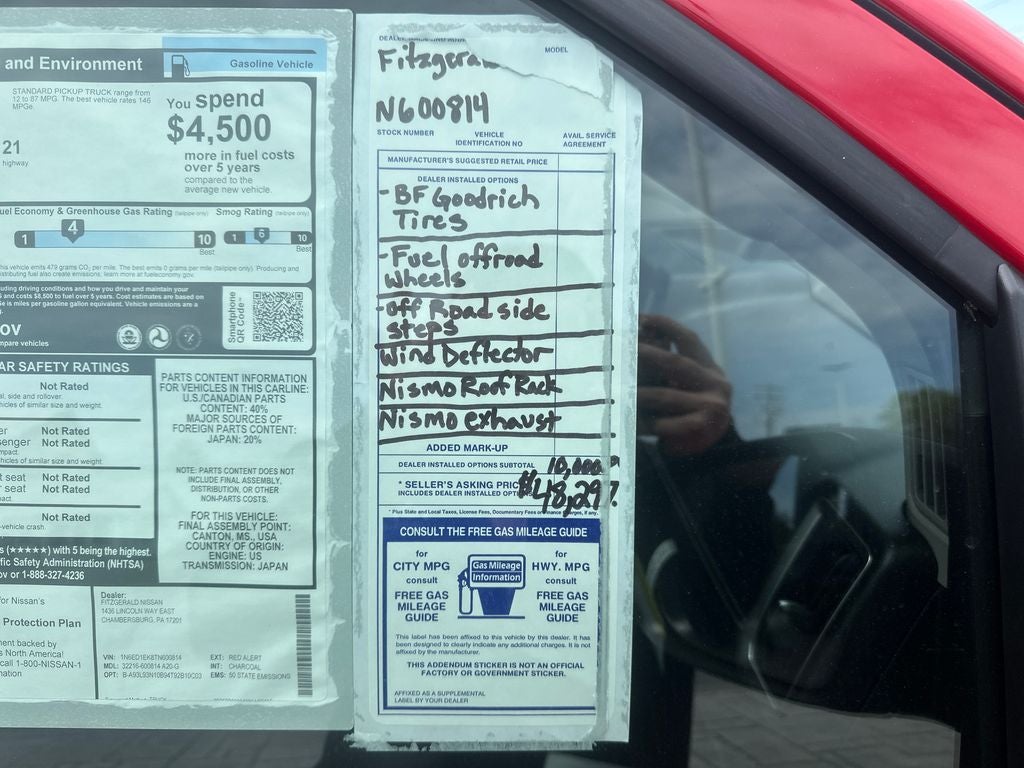 and Environment
Gasoline Vehicle
STANDARD PICKUP TRUCK range from
12 to 87 MPG. The best vehicle rates 146
MPGe.
You spend
$4,500
more in fuel costs
over 5 years
compared to the
average new vehicle.
21
highway
uel Economy & Greenhouse Gas Rating (tailpipe only)
Smog Rating (tailpipe only)
1
4
10
Best
1
6
10
Best
his vehicle emits 479 grams CO2 per mile. The best emits 0 grams per mile (tailpipe only). Producing and
stributing fuel also create emissions; learn more at fueleconomy.gov.
uding driving conditions and how you drive and maintain your
and costs $8,500 to fuel over 5 years. Cost estimates are based on
e is miles per gasoline gallon equivalent. Vehicle emissions are a
ov
mpare vehicles
Smartphone
QR Code™
AR SAFETY RATINGS
Not Rated
al, side and rollover.
hicles of similar size and weight.
er Not Rated
senger Not Rated
mpact.
hicles of similar size and weight.
t seat Not Rated
r seat Not Rated
pact.
Not Rated
-vehicle crash.
s (★★★★★) with 5 being the highest.
ffic Safety Administration (NHTSA)
ov or 1-888-327-4236
PARTS CONTENT INFORMATION
FOR VEHICLES IN THIS CARLINE:
U.S./CANADIAN PARTS
CONTENT: 40%
MAJOR SOURCES OF
FOREIGN PARTS CONTENT:
JAPAN: 20%
NOTE: PARTS CONTENT DOES NOT
INCLUDE FINAL ASSEMBLY,
DISTRIBUTION, OR OTHER
NON-PARTS COSTS.
FOR THIS VEHICLE:
FINAL ASSEMBLY POINT:
CANTON, MS., USA
COUNTRY OF ORIGIN:
ENGINE: US
TRANSMISSION: JAPAN
for Nissan's
Protection Plan
ent backed by
s North America!
call 1-800-NISSAN-1
mation
Dealer:
FITZGERALD NISSAN
1436 LINCOLN WAY EAST
CHAMBERSBURG, PA 17201
VIN: 1N6ED1EK8TN600814
MDL: 32216-600814 A20-G
OPT: B-A93L93N10B94T92B10C03
EXT: RED ALERT
INT: CHARCOAL
EMS: 50 STATE EMISSIONS
MODEL
Fitzgeral
N600814
STOCK NUMBER
VEHICLE
IDENTIFICATION NO
AVAIL. SERVICE
AGREEMENT
MANUFACTURER'S SUGGESTED RETAIL PRICE
DEALER INSTALLED OPTIONS
- BF Goodrich
Tires
- Fuel offroad
wheels
- off Road side
steps
Wind Deflector
Nismo Roof Rack
Nismo exhaust
ADDED MARK-UP
DEALER INSTALLED OPTIONS SUBTOTAL 10,000
* SELLER'S ASKING PRIC $48,297.
INCLUDES DEALER INSTALLED OPTI
* Plus State and Local Taxes, License Fees, Documentary Fees or finance charges, if any.
CONSULT THE FREE GAS MILEAGE GUIDE
for
CITY MPG
consult
FREE GAS
MILEAGE
GUIDE
Gas Mileage
Information
for
HWY. MPG
consult
FREE GAS
MILEAGE
GUIDE
This label has been affixed to this vehicle by this dealer. It has
been designed to clearly indicate any additional charges. It is not
affixed by the manufacturer.
THIS ADDENDUM STICKER IS NOT AN OFFICIAL
FACTORY OR GOVERNMENT STICKER.
AFFIXED AS A SUPPLEMENTAL
LABEL BY YOUR DEALER